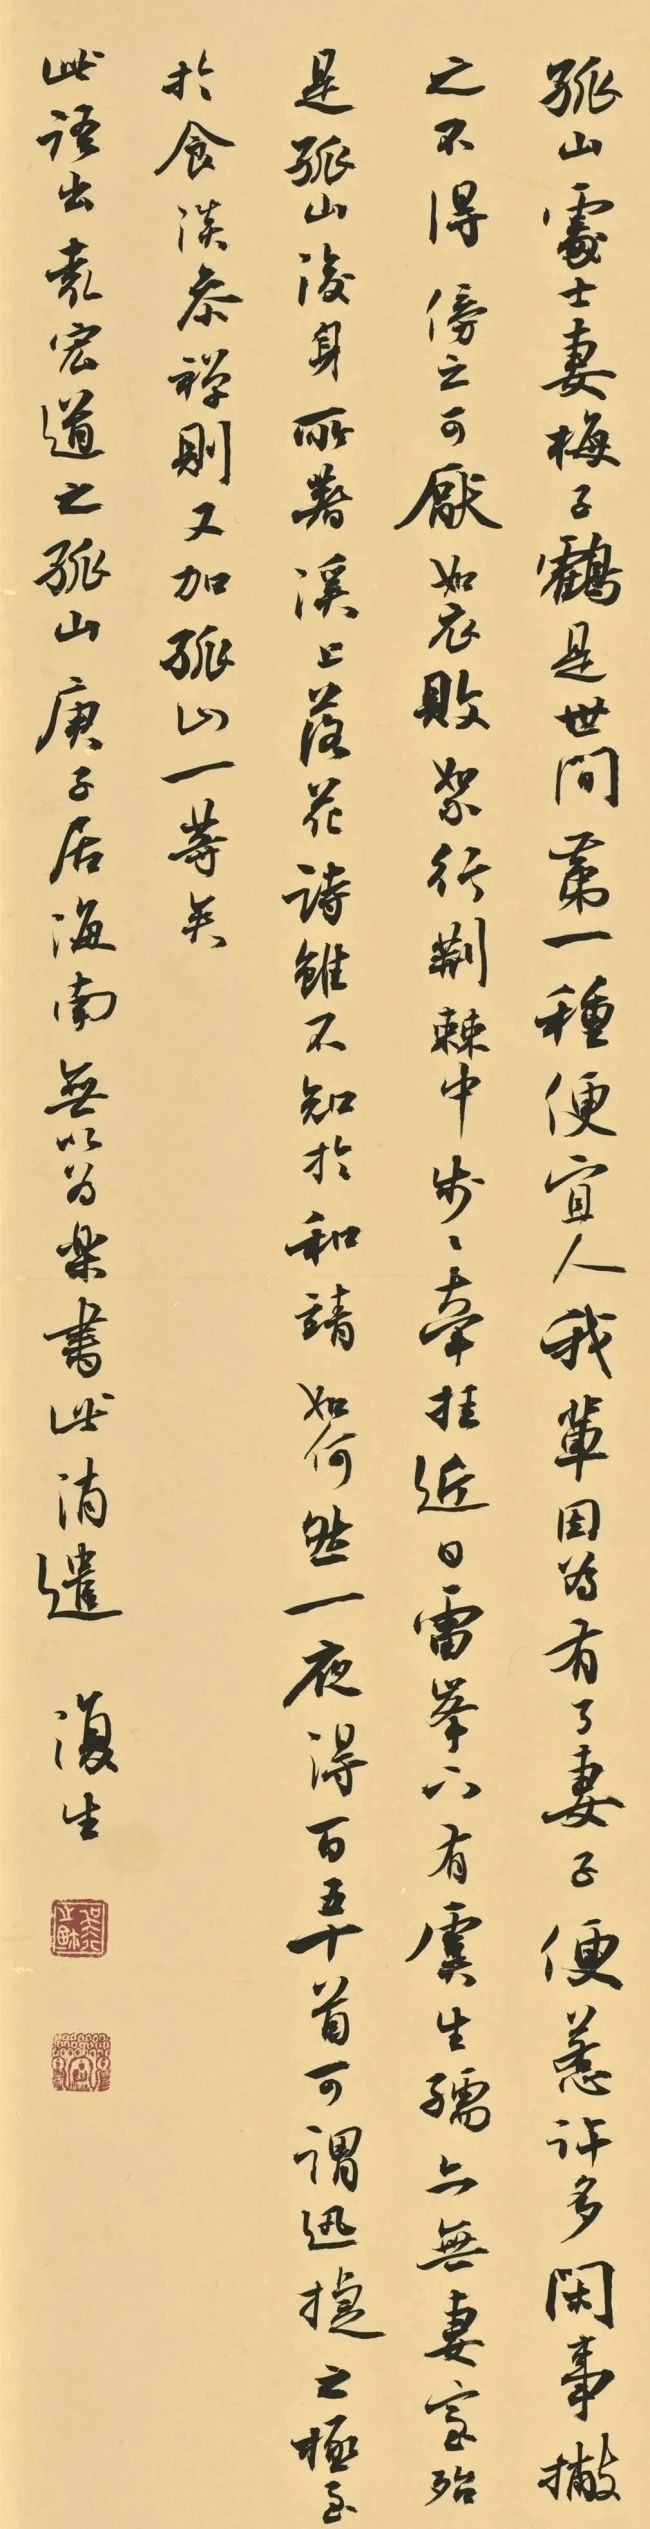 孤山處士妻梅子鶴是世間第一種便宜人我輩因為有了妻子便惹許多閑事撇
之不得傍之可厭如衣敗絮行荆棘中步〻牽挂近日雷峯下有虞生孺亦無妻室殆
是孤山後身所著溪上落花詩雖不知於和靖如何然一夜得百五十首可謂迅捷之極至
於食淡参禅則又加孤山一等矣
此語出袁宏道之孤山庚子居海南無以為楽書此消遣 復生